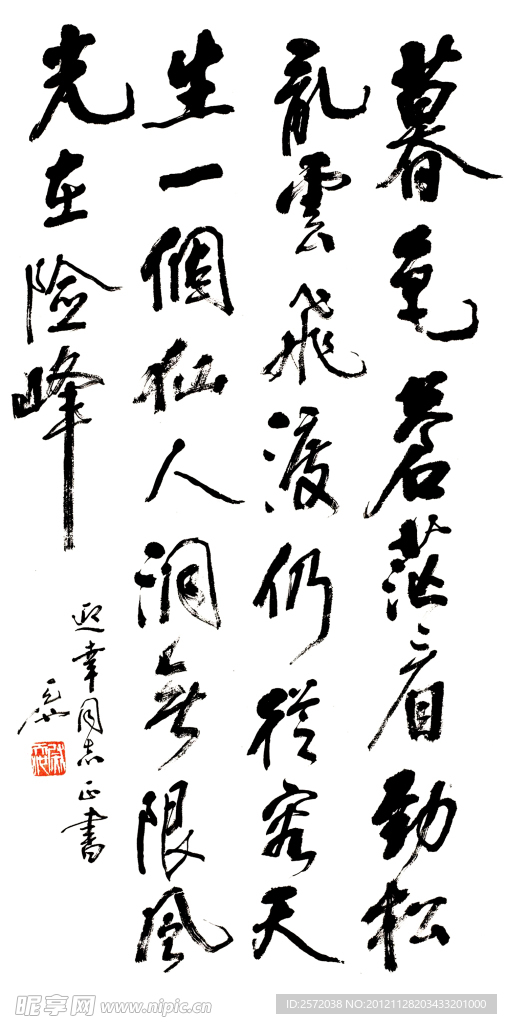 暮色蒼茫看勁松
亂雲飛渡仍從容天
生一個仙人洞無限風
光在險峰
迎幸同志正書
昵享网 www.nipic.cn
ID:2572038 NO:20121128203433201000